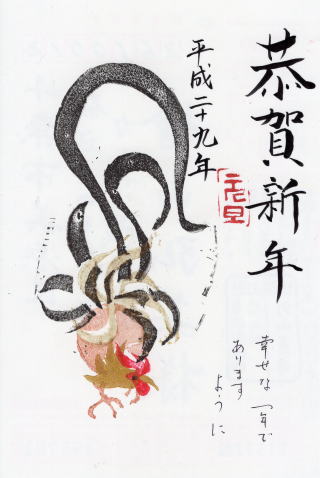 恭賀新年
平成二十九年
元旦
幸せな一年で
あります
ように